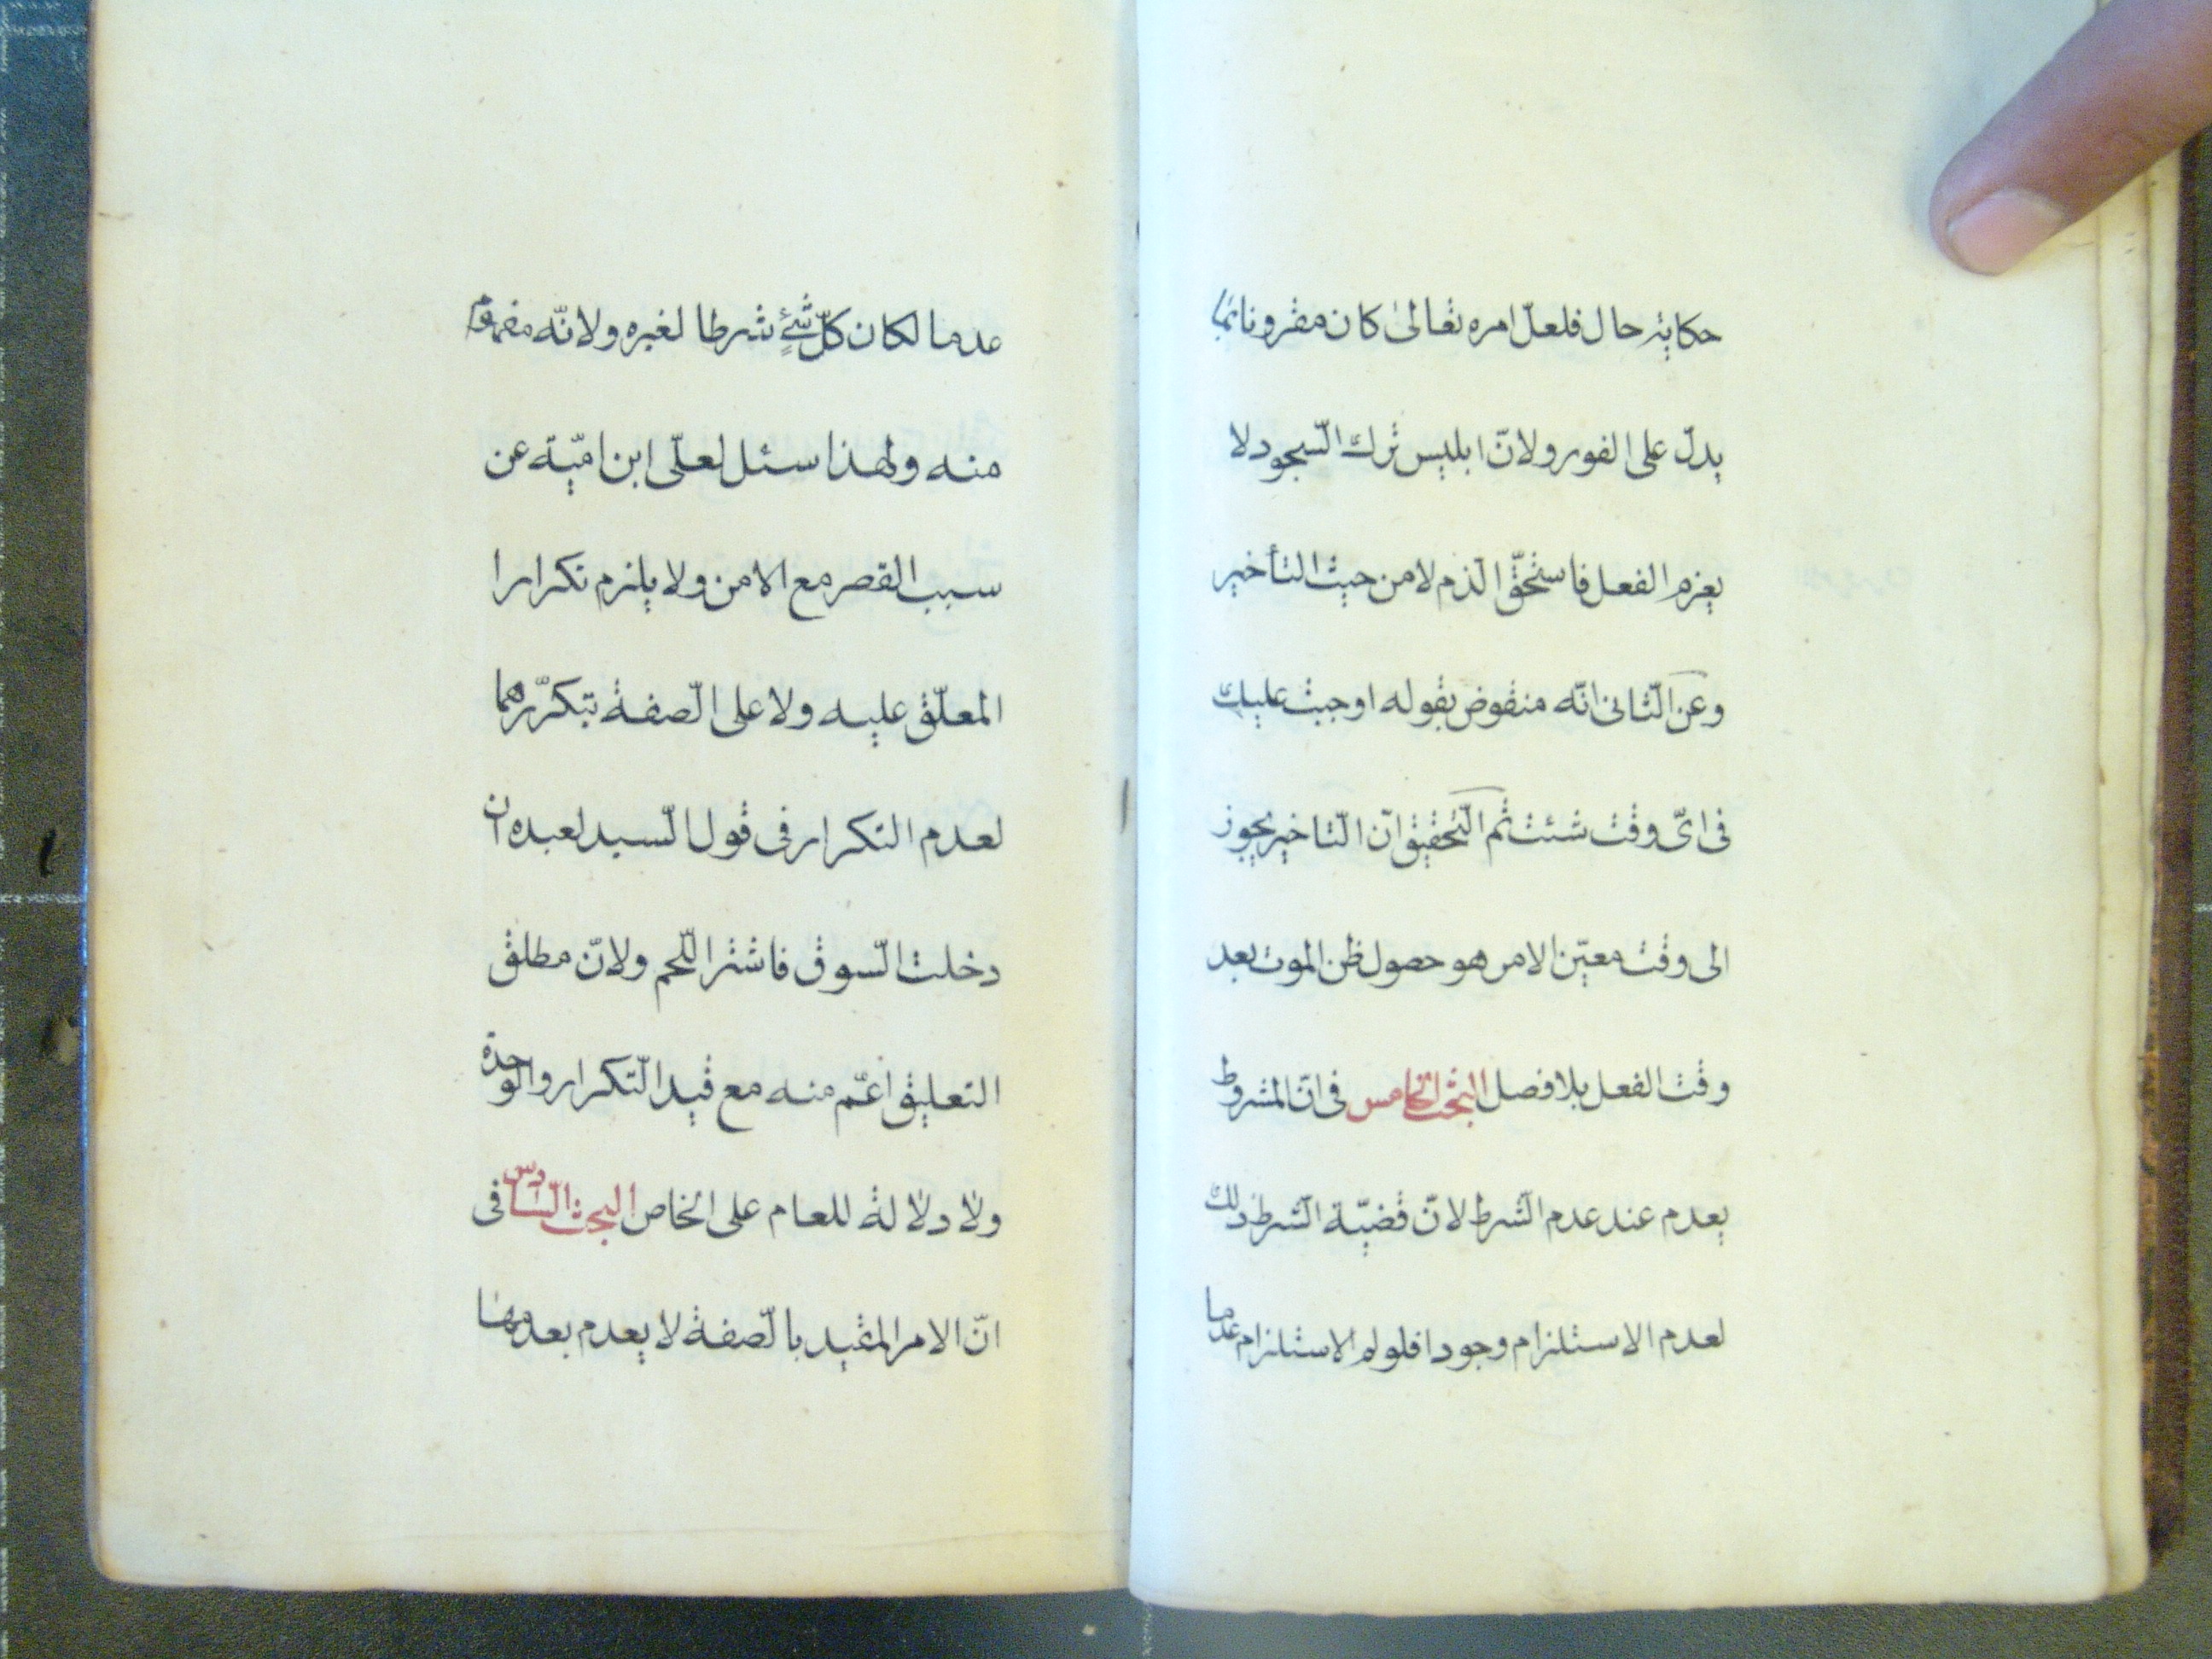 حكاية حال فلعلّ امره تعالىٰ كان مقرونا بما
يدلّ على الفور ولانّ ابليس ترك السّجود لا
بعزم الفعل فاستحقّ الذم لا من حيث التأخير
وعن الثّانى انّه منقوض بقوله اوجبت عليك
فى اىّ وقت شئت ثم التّحقيق انّ التّاخير يجوز
الى وقت معيّن الامر هو حصول ظن الموت بعد
وقت الفعل بلا فصل البحث الخامس فى انّ المشروط
يعدم عند عدم الشّرط لانّ قضيّة الشّرط ذلك
لعدم الاستلزام وجودا فلو لم الاستلزام عدما
عدما لكان كلّ شئٍ شرطا لغيره ولانّه مفهوم
منه ولهذا سئل لعلّى ابن اميّة عن
سبب القصر مع الامن ولا يلزم تكرارا
المعلّق عليه ولا على الصّفة بتكرّرهما
لعدم التكرار فى قول السّيد لعبده ان
دخلت السّوق فاشتر اللّحم ولانّ مطلق
التعليق اعّم منه مع قيد التّكرار والوحدة
ولا دلالة للعام على الخاص البحث السّادس فى
انّ الامر المقيد بالصّفة لا يعدم بعدمها